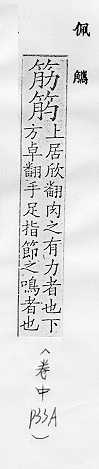 佩觿
筋筋
上居欣翻肉之有力者也下
方卓翻手足指節之鳴者也
(卷中
P33A
)